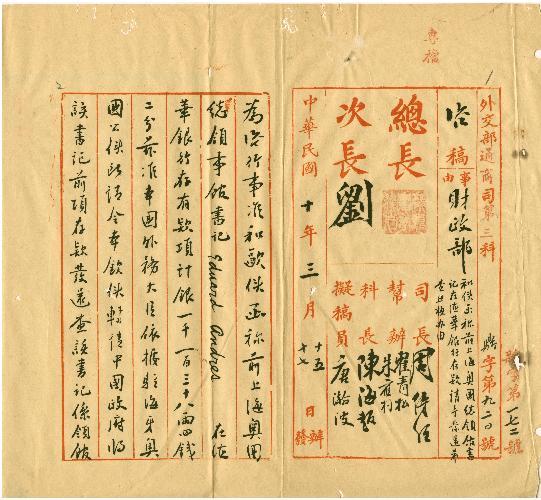 專檔
外交部通商司第三科
咨稿
事由
財政部
和伕函称前上海奧國總領館書
記在德華銀行存款請予發還希
查照核办由
號字第一七二號
聯字第九二〇號
總長
次長 劉
司長 周傳經
幫辦
科長 陳海超
擬稿員 唐
中華民國十年三月十五日辦
十七 發
為咨行事准和歐使函称前上海奧國
總領事館書記 Eduard Andres 在德
華銀行存有款項計銀一千一百三十八兩四錢
二分茲准本國外務大臣依據駐海牙奧
國公使所請令本欽使轉請中國政府將
該書記前項存款發還查該書記係領館